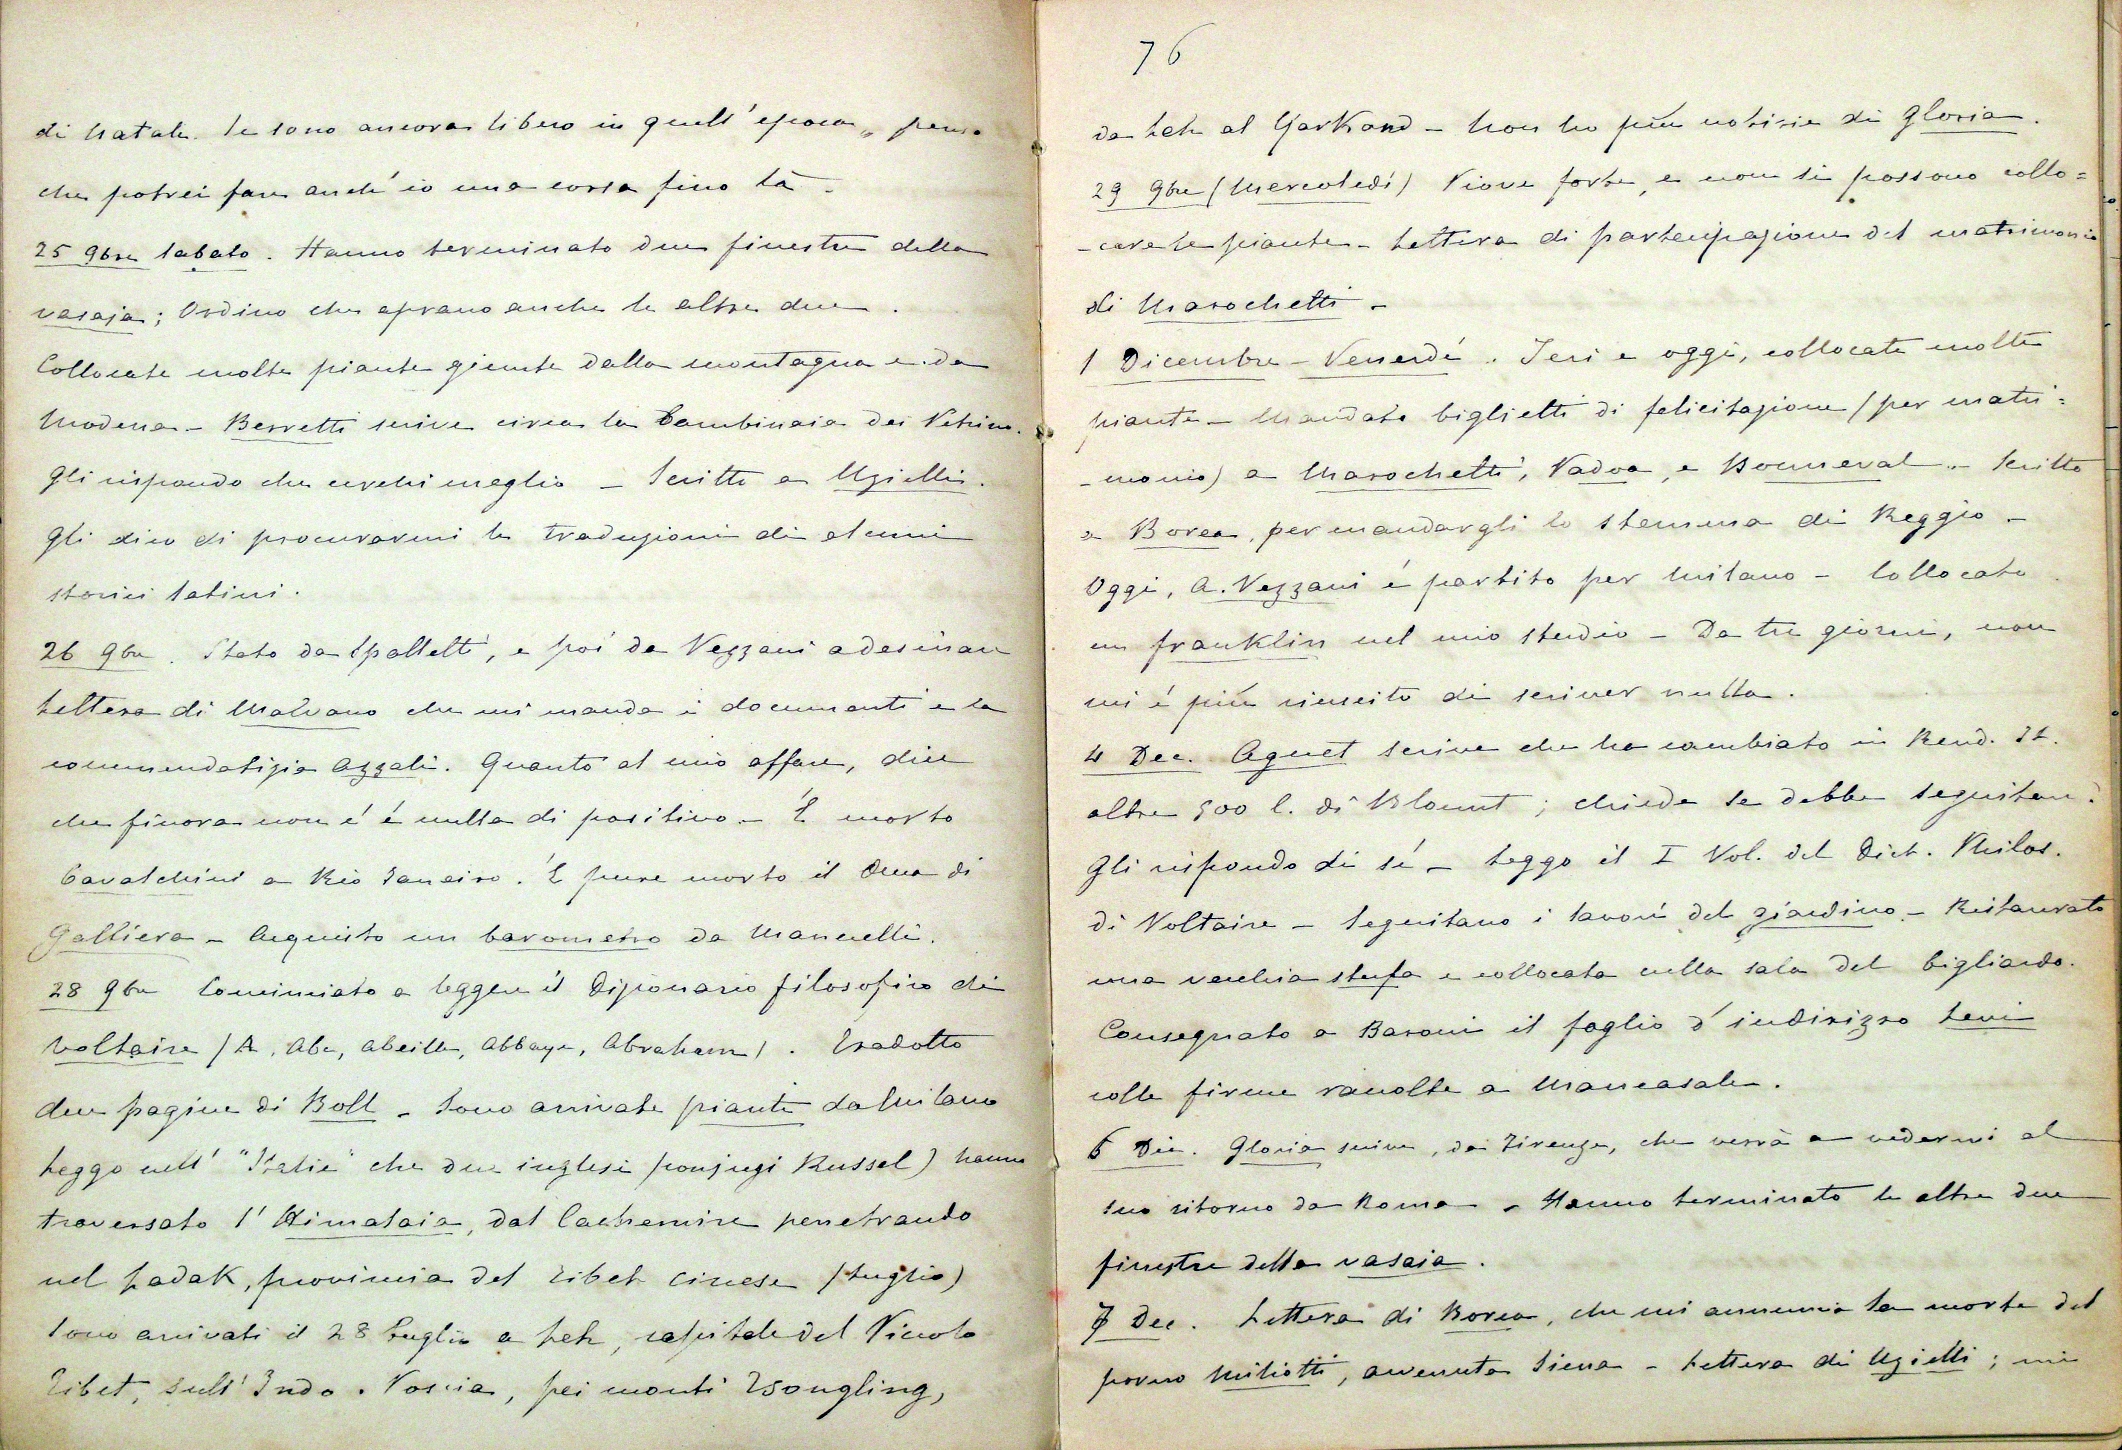 di Natale. Se sono ancora libero in quell'epoca, penso
che potrei fare anch'io una corsa fino là.
25 9bre Sabato. Hanno terminato due finestre della
vasaja; Ordino che aprano anche le altre due.
Collocate molte piante giunte dalla montagna e da
Modena - Berretti scrive circa la bambinaia dei
Gli rispondo che cerchi meglio - Scritto a Uzielli.
Gli dico di procurarmi le traduzioni di alcuni
storici latini.
26 9bre. Stato da Spalletti, e poi da Vezzani a desinare
Lettera di Malvano che mi manda i documenti e la
commendatizia Azzali. Quanto al mio affare, dice
che finora non c'é nulla di positivo - É morto
Cavalchini a Rio Janeiro. É pure morto il Duca di
Galliera - Acquisto un barometro da Manuelli.
28 9bre Cominciato a leggere il Dizionario filosofico di
Voltaire (A, Abc, Abeille, Abbaye, Abraham). Tradotto
due pagine di Boll - Sono arrivate piante da Milano
Leggo nell' "Italie" che due inglesi (conjugi Russel) hanno
traversato l'Himalaia, dal Cachemire penetrando
nel Ladak, provincia del Tibet cinese (Luglio)
Sono arrivati il 28 Luglio a Leh, capitale del Piccolo
Tibet, sull'Indo. Poscia, pei monti Tsongling,
76
da Leh al Yarkand - Non ho più notizie di Gloria.
29 9bre (Mercoledí) Piove forte, e non si possono collo=
-care le piante - Lettera di partecipazione del matrimonio
di Marochetti -
1 Dicembre - Venerdí. Ieri e oggi, collocate molte
piante - Mandato biglietti di felicitazione (per matri=
-monio) a Marochetti, Vadoa, e Bonneval - Scritto
a Borea, per mandargli lo stemma di Reggio -
Oggi, A. Vezzani é partito per Milano - Collocato
un franklin nel mio studio - Da tre giorni, non
mi é più riuscito di scriver nulla.
4 Dec. Aguet scrive che ha cambiato in Rend. It.
altre 500 l. di Blount; chiede se debba seguitare?
Gli rispondo di sí - Leggo il I Vol. del Dict. Philos.
di Voltaire - Seguitano i lavori del giardino - Restaurata
una vecchia stufa e collocata nella sala del bigliardo.
Consegnato a Baroni il foglio d'indirizzo Levi
colle firme raccolte a Mancasale.
6 Dic. Gloria scrive, da Firenze, che verrà a vedermi al
suo ritorno da Roma - Hanno terminato le altre due
finestre della vasaia.
7 Dec. Lettera di Borea, che mi annuncia la morte del
povero Miliotti, avvenuta Siena - Lettera di Uzielli; mi